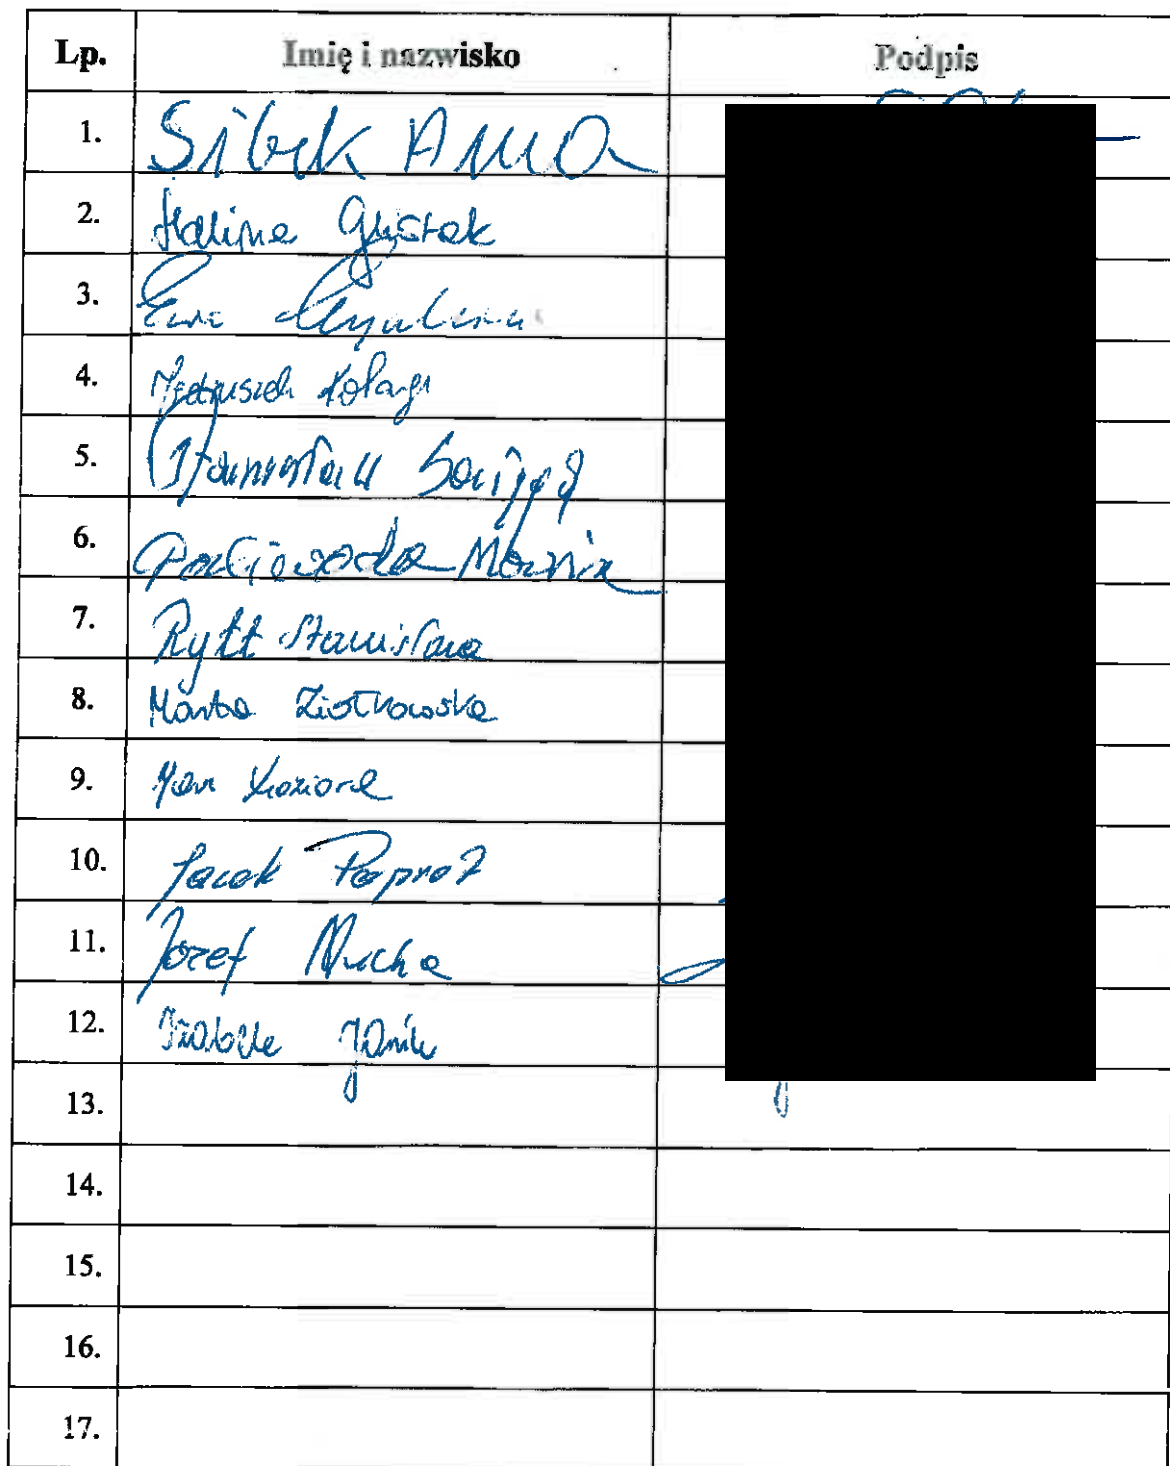 Lp. Imię i nazwisko Podpis
1. Sibek Anna
2. Halina Gustak
3. Ewa
4.
5. Stanisław
6. Maria
7. Rytt Stanisława
8. Marta Ziółkowska
9. Jan Kozioroł
10. Jacek Paproż
11. Józef Mucha
12. Izabela Janik
13.
14.
15.
16.
17.